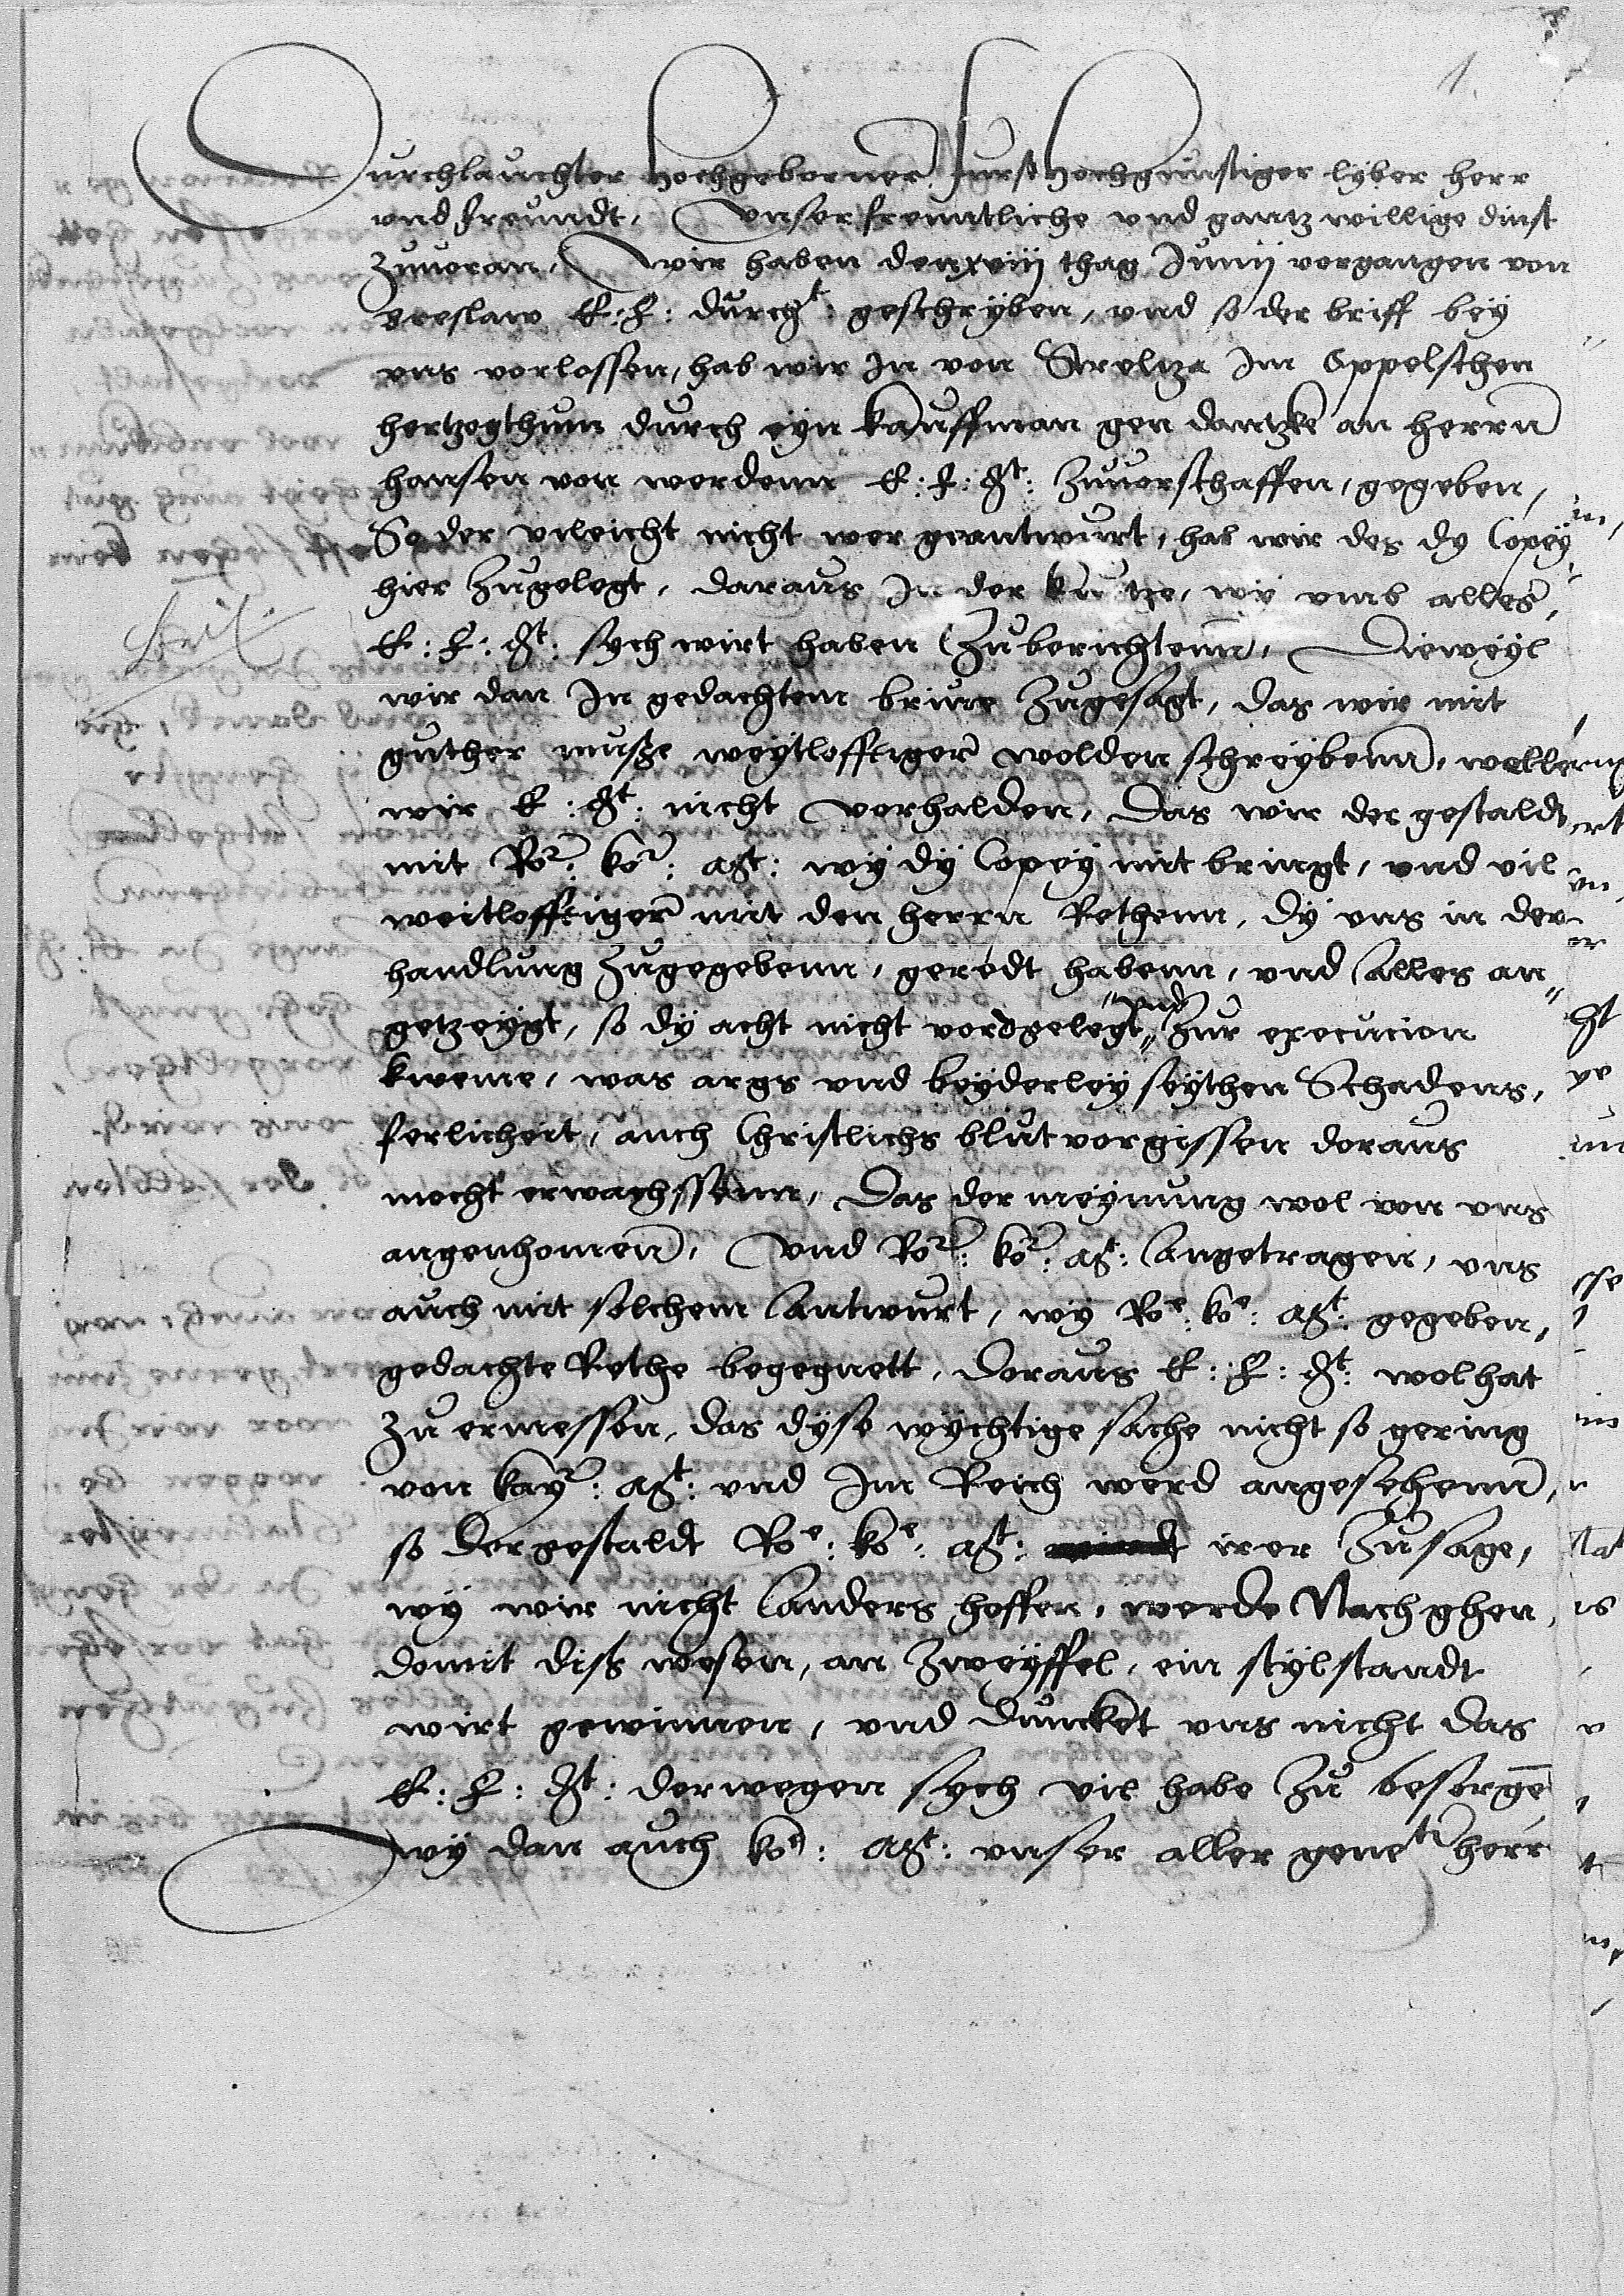 1.
Durchlauchter hochgeborner furst hochgunstiger lyber herr
vnd freundt, Vnser freuntliche vnd gantz willige dinst
zuuoran, Wir haben den xviij thag Junij vergangen von
Breslaw E: F: durcht: geschryben, vnd so der briff bey
vns vorlossen, hab wir In von Strelitza Im Oppelschen
hertzogthum durch eyn kauffman gen dantzke an herrn
hansen von werdenn E: F: gt: zuuorschaffen, gegeben,
So der vileicht nicht wer geantwurt, hab wir des dy Copey
hier zugelegt, daraus In der kurtze, wy vmb alles,
E: F: gt: sych wirt haben zuberichtenn, Dieweyl
wir dan In gedachtem briue zugesagt, das wir mit
guther musze weytlofftiger wolden schreybenn, wellen
wir E: gt: nicht vorhalden, Das wir der gestaldt
mit Ror: kor: Mt: wy dy Copey mit bringt, vnd vil
weitlofftiger mit den herrn Rethenn, dy vns in der
handlung zugegebenn, geredt habenn, vnd alles an„
getzeygt, so dy acht nicht vordgelegt „vnd„ zur execucion
kweme, was args vnd beyderley seythen Schadens,
ferlicheit, auch Christlichs blut vorgissen doraus
mocht erwachssenn, Das der meynung wol von vns
angenhomen, Vnd Ror: kor: Mt: angetragen, vns
auch mit solchem antwurt, wy Roe: koe: Mt: gegeben,
gedachte Rethe begegnett, Doraus E: F: gt: wol hat
zu ermessen, das dyse wychtige sache nicht so gering
von kayr: Mt: vnd Im Reich werd angesehenn,
so der gestaldt Roe: koe: Mt: irer zusage,
wy wir nicht anders hoffen, werde Nach ghen,
domit diss wesen, an zweyffel, ein stylstandt
wirt gewinnen, vnd dunckt vns nicht das
E: F: gt: derwegen sych vil habe zu besorgē
wy dan auch koe: Mt: vnser aller genetr herr